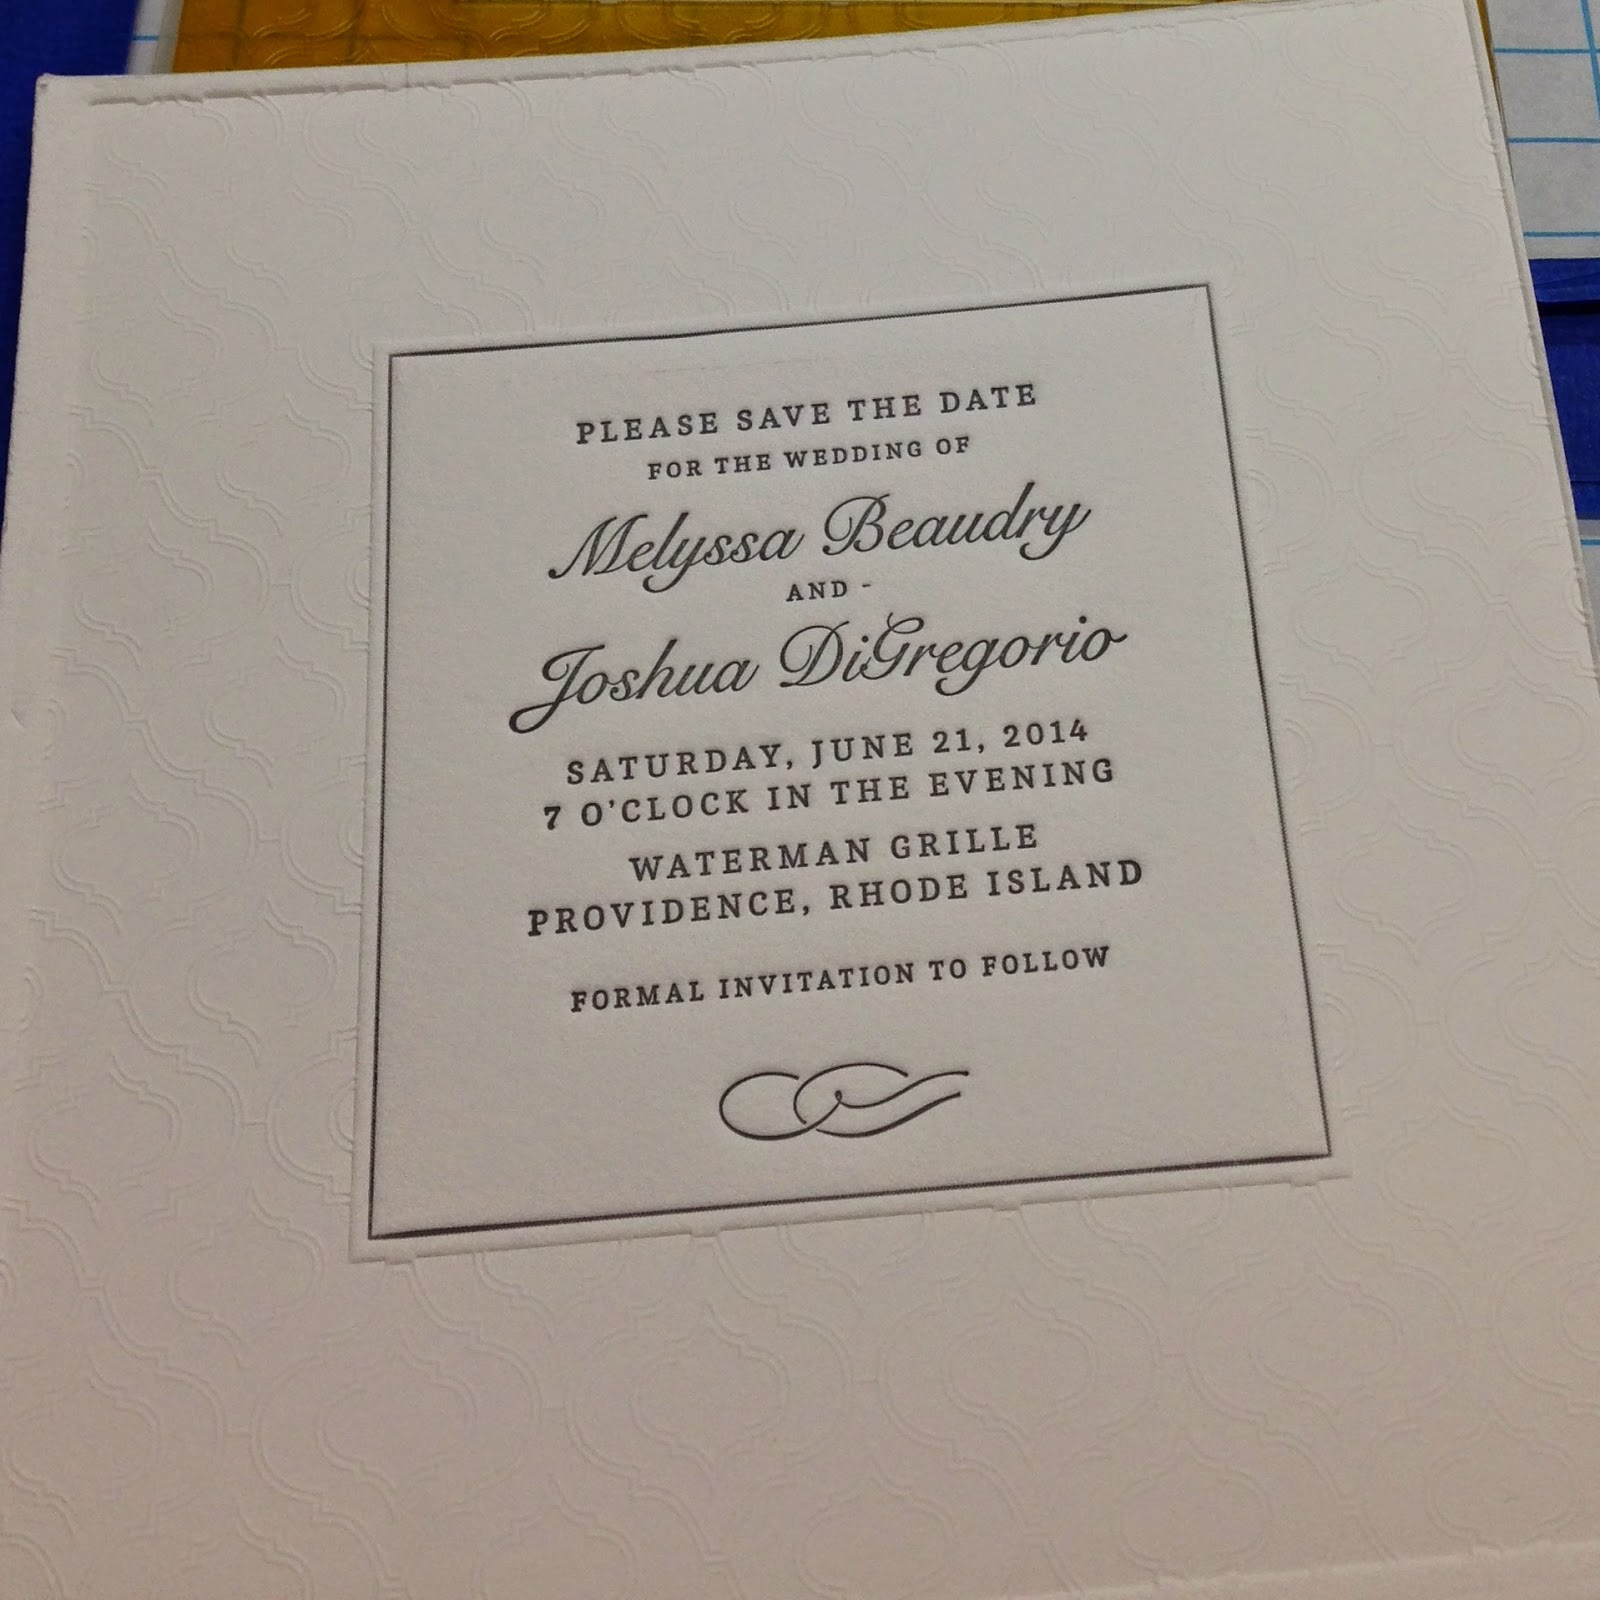 PLEASE SAVE THE DATE
FOR THE WEDDING OF
Melyssa Beaudry
AND -
Joshua DiGregorio
SATURDAY, JUNE 21, 2014
7 O'CLOCK IN THE EVENING
WATERMAN GRILLE
PROVIDENCE, RHODE ISLAND
FORMAL INVITATION TO FOLLOW